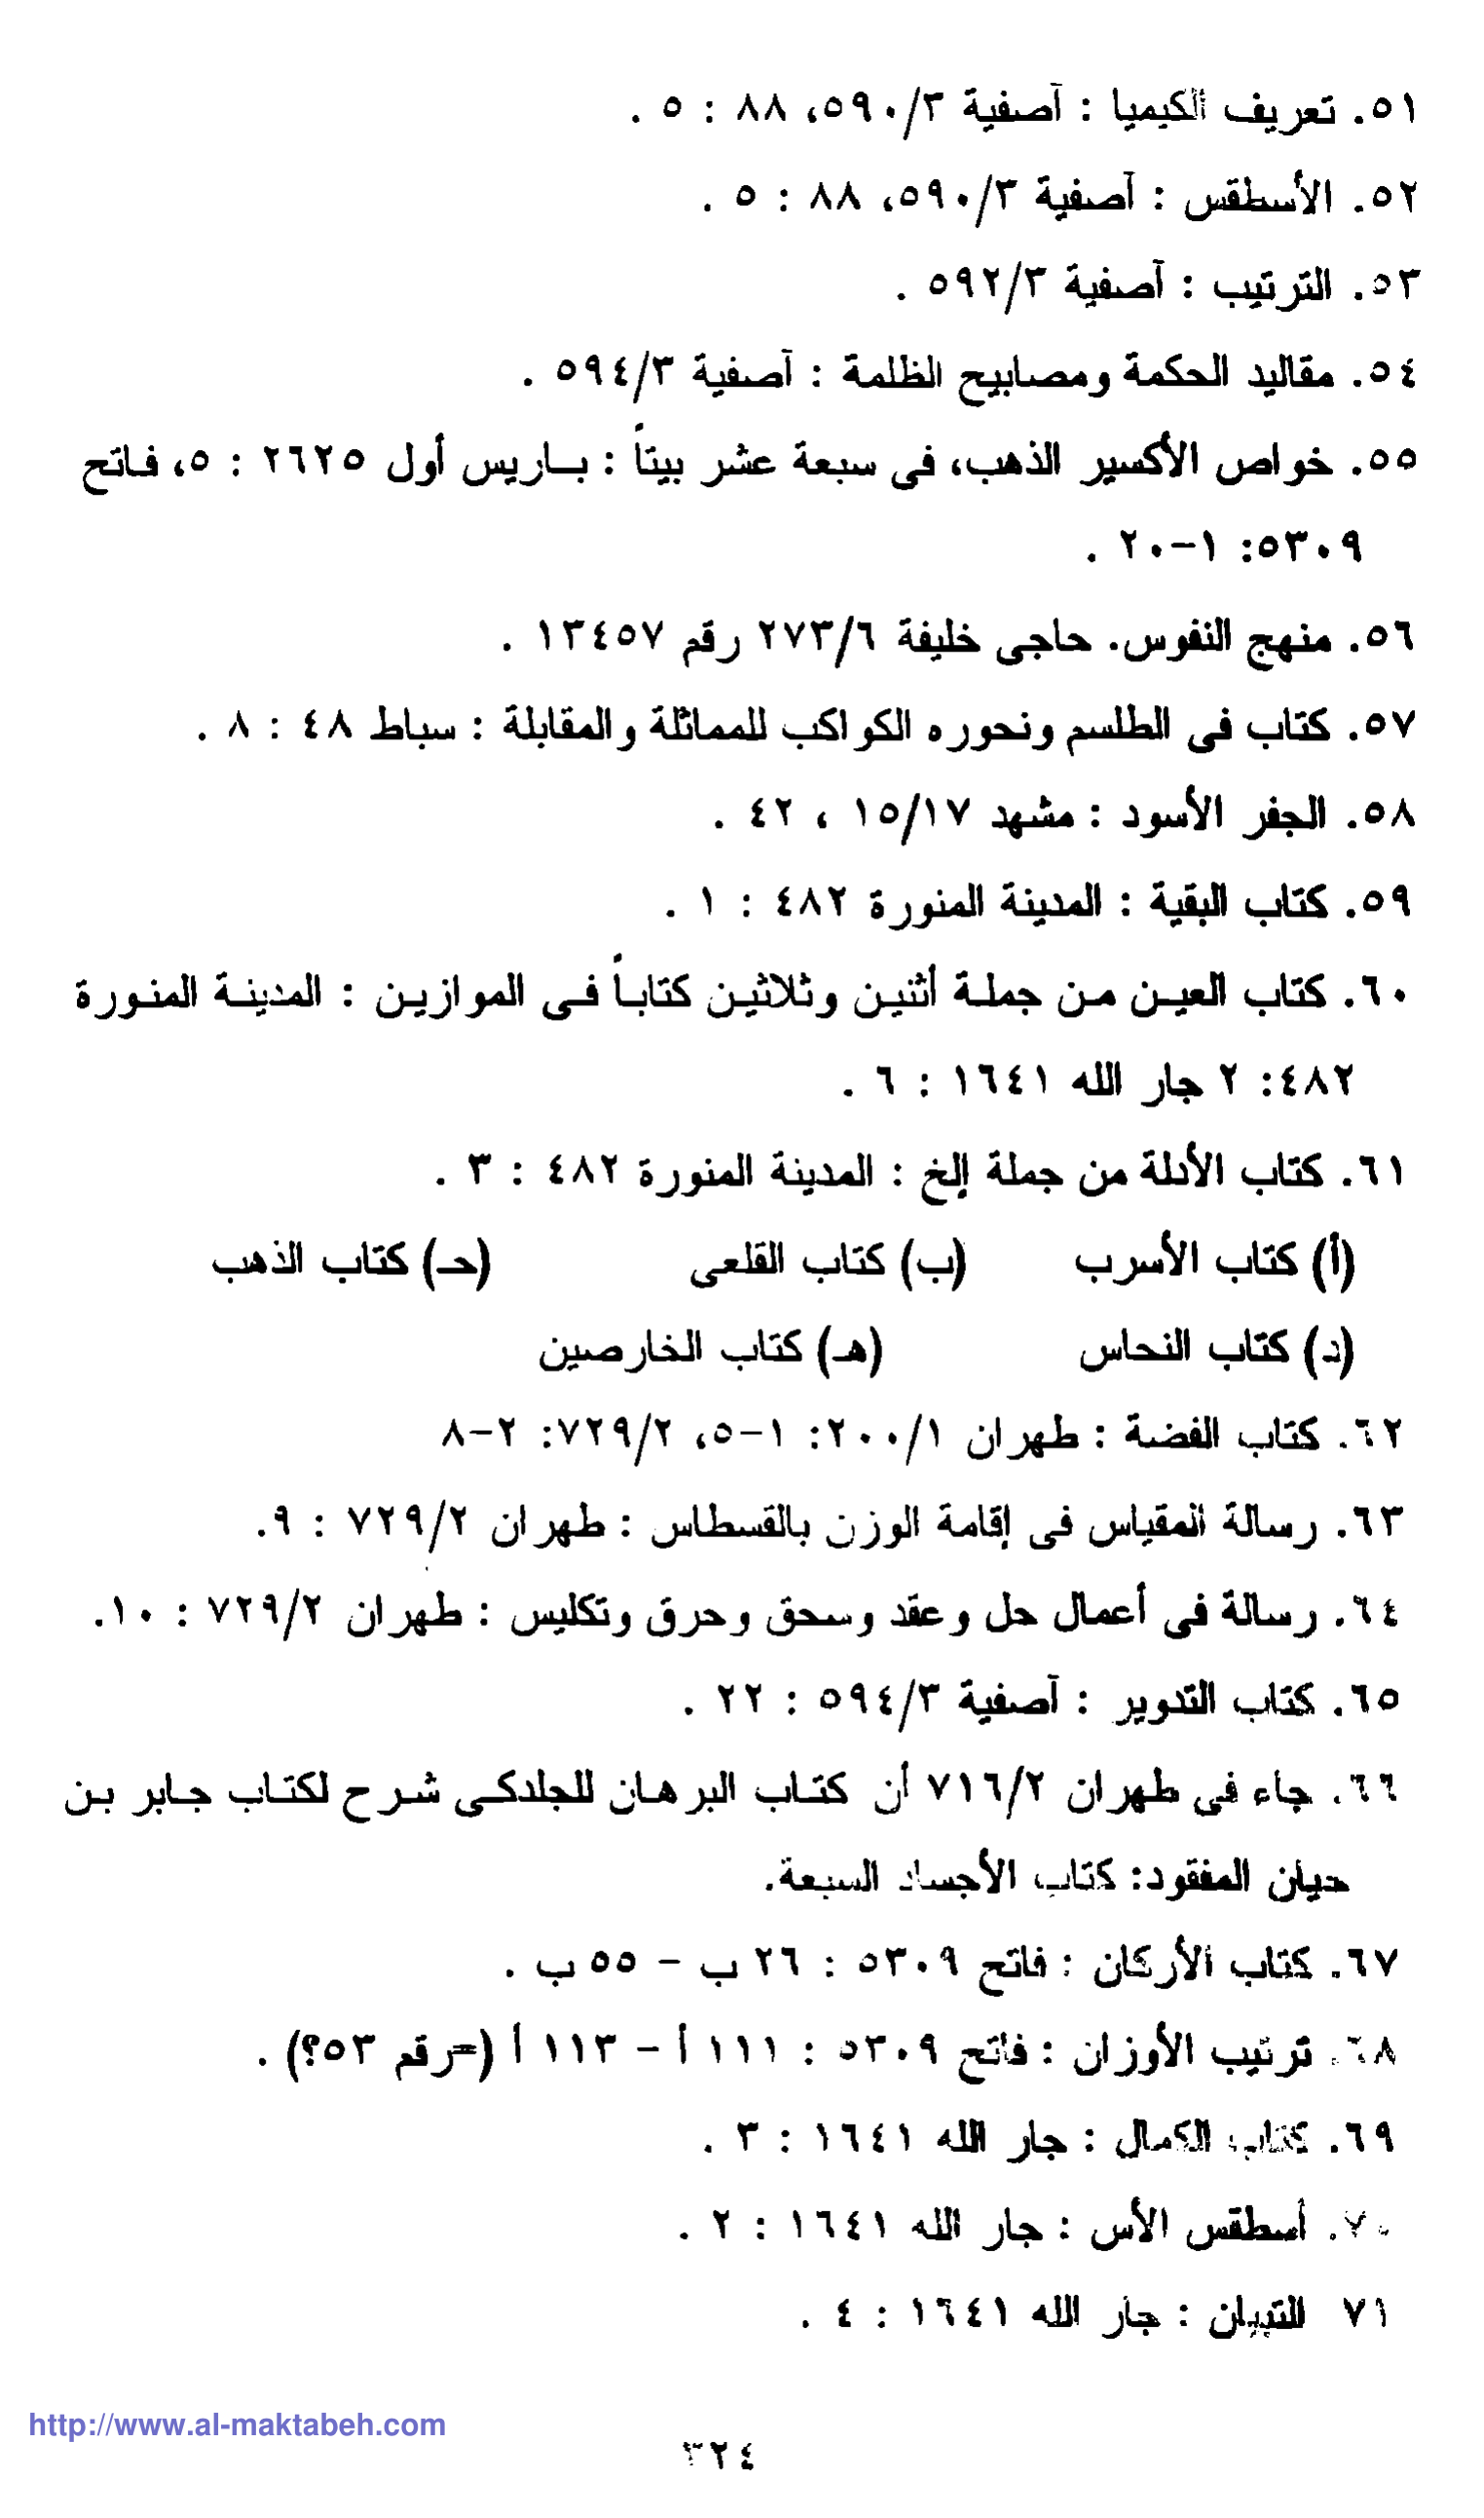 ٥١. تعريف الكيميا : آصفية ٥٩٠/٣، ٨٨ : ٥ .
٥٢. الأسطقس : آصفية ٥٩٠/٣، ٨٨ : ٥ .
٥٣. الترتيب : آصفية ٥٩٢/٣ .
٥٤. مقاليد الحكمة ومصابيح الظلمة : آصفية ٥٩٤/٣ .
٥٥. خواص الأكسير الذهب، فى سبعة عشر بيتاً : باريس أول ٢٦٢٥ : ٥، فاتح
٥٣٠٩: ١-٢٠ .
٥٦. منهج النفوس. حاجى خليفة ٢٧٣/٦ رقم ١٣٤٥٧ .
٥٧. كتاب فى الطلسم ونحوره الكواكب للمماثلة والمقابلة : سباط ٤٨ : ٨ .
٥٨. الجفر الأسود : مشهد ١٥/١٧ ، ٤٢ .
٥٩. كتاب البقية : المدينة المنورة ٤٨٢ : ١ .
٦٠. كتاب العين من جملة أثنين وثلاثين كتاباً فى الموازين : المدينة المنورة
٤٨٢: ٢ جار الله ١٦٤١ : ٦ .
٦١. كتاب الأدلة من جملة إلخ : المدينة المنورة ٤٨٢ : ٣ .
(أ) كتاب الأسرب (ب) كتاب القلعى (حـ) كتاب الذهب
(د) كتاب النحاس (هـ) كتاب الخارصين
٦٢. كتاب الفضة : طهران ٢٠٠/١: ١-٥، ٧٢٩/٢: ٢-٨
٦٣. رسالة المقياس فى إقامة الوزن بالقسطاس : طهران ٧٢٩/٢ : ٩.
٦٤. رسالة فى أعمال حل وعقد وسحق وحرق وتكليس : طهران ٧٢٩/٢ : ١٠.
٦٥. كتاب التدوير : آصفية ٥٩٤/٣ : ٢٢ .
٦٦. جاء فى طهران ٧١٦/٢ أن كتاب البرهان للجلدكى شرح لكتاب جابر بن
حيان المفقود: كتاب الأجساد السبعة.
٦٧. كتاب الأركان : فاتح ٥٣٠٩ : ٢٦ ب - ٥٥ ب .
٦٨. ترتيب الأوزان : فاتح ٥٣٠٩ : ١١١ أ - ١١٣ أ (=رقم ٥٣؟) .
٦٩. كتاب الكمال : جار الله ١٦٤١ : ٣ .
٧٠. أسطقس الأس : جار الله ١٦٤١ : ٢ .
٧١ التبيان : جار الله ١٦٤١ : ٤ .
http://www.al-maktabeh.com
٣٢٤